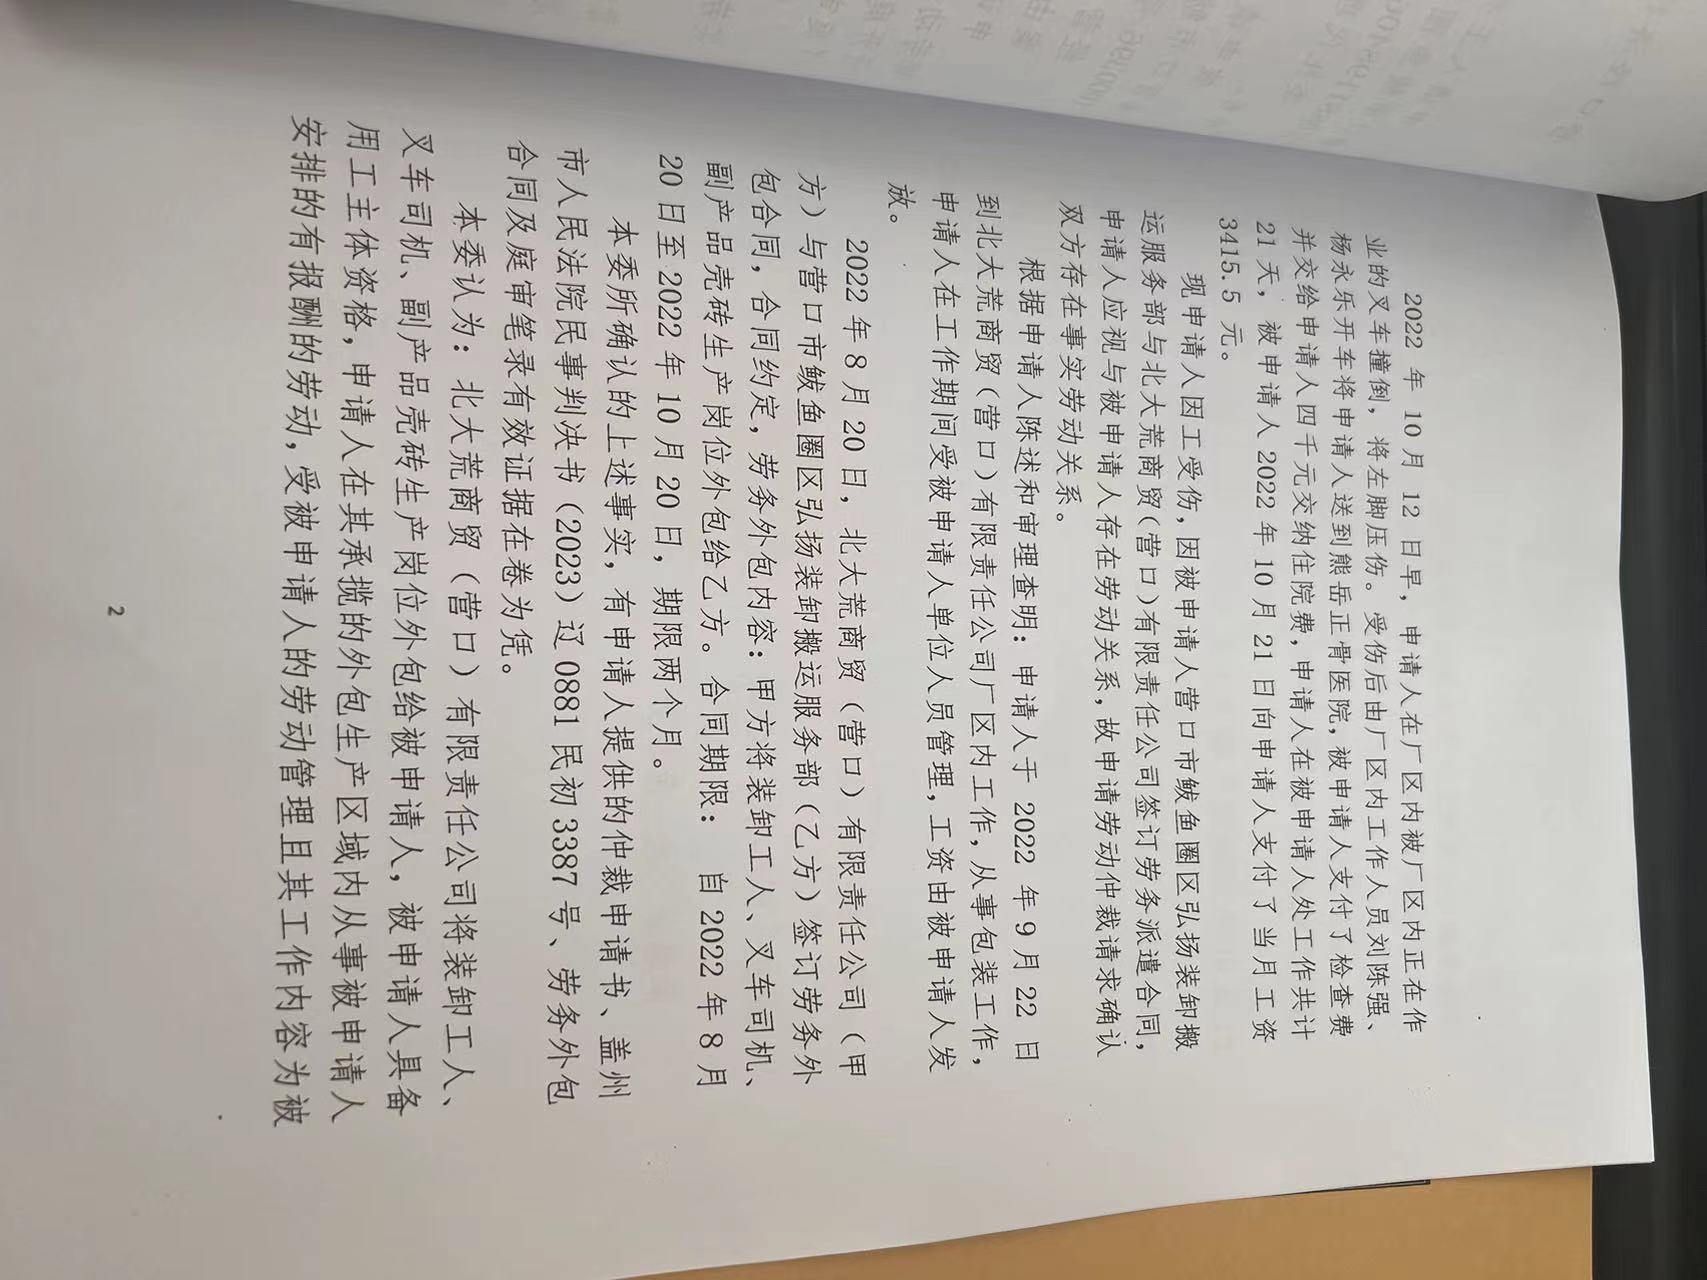 2022 年 10 月 12 日早，申请人在厂区内被厂区内正在作
业的叉车撞倒，将左脚压伤。受伤后由厂区内工作人员刘陈强、
杨永乐开车将申请人送到熊岳正骨医院，被申请人支付了检查费
并交给申请人四千元交纳住院费，申请人在被申请人处工作共计
21 天，被申请人 2022 年 10 月 21 日向申请人支付了当月工资
3415.5 元。
现申请人因工受伤，因被申请人营口市鲅鱼圈区弘扬装卸搬
运服务部与北大荒商贸（营口）有限责任公司签订劳务派遣合同，
申请人应视与被申请人存在劳动关系，故申请劳动仲裁请求确认
双方存在事实劳动关系。
根据申请人陈述和审理查明：申请人于 2022 年 9 月 22 日
到北大荒商贸（营口）有限责任公司厂区内工作，从事包装工作，
申请人在工作期间受被申请人单位人员管理，工资由被申请人发
放。
2022 年 8 月 20 日，北大荒商贸（营口）有限责任公司（甲
方）与营口市鲅鱼圈区弘扬装卸搬运服务部（乙方）签订劳务外
包合同，合同约定，劳务外包内容：甲方将装卸工人、叉车司机、
副产品壳砖生产岗位外包给乙方。合同期限： 自 2022 年 8 月
20 日至 2022 年 10 月 20 日，期限两个月。
本委所确认的上述事实，有申请人提供的仲裁申请书、盖州
市人民法院民事判决书（2023）辽 0881 民初 3387 号、劳务外包
合同及庭审笔录有效证据在卷为凭。
本委认为：北大荒商贸（营口）有限责任公司将装卸工人、
叉车司机、副产品壳砖生产岗位外包给被申请人，被申请人具备
用工主体资格，申请人在其承揽的外包生产区域内从事被申请人
安排的有报酬的劳动，受被申请人的劳动管理且其工作内容为被
2